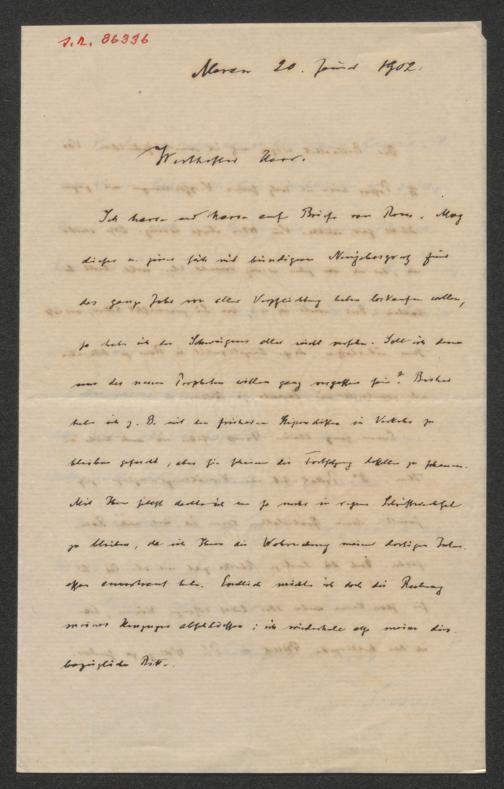 J.N. 86396
Meran 20. Juni 1902.
Werthester Herr.
Ich harre und harre auf Briefe von Rom. Mag
dieser u. jener sich mit bündigem Neujahrsgruß für
das ganze Jahr von aller Verpflichtung haben loskaufen wollen,
so habe ich des Schweigens aller nicht. Soll ich denn
nur des neuen Propheten willen ganz vergessen sein? Bisher
habe ich z. B. mit den früheren in Verkehr zu
bleiben gesucht, aber sie scheinen die Fortsetzung desselben zu scheuen.
Mit Ihnen selbst dachte ich um so mehr in regem Schriftwechsel
zu bleiben, da ich Ihnen die Wahrnehmung meiner dortigen Inter-
essen anvertraut habe. Endlich möchte ich doch die Rechnung
meines abschließen; ich wiederhole also meine dies-
bezügliche Bitte.